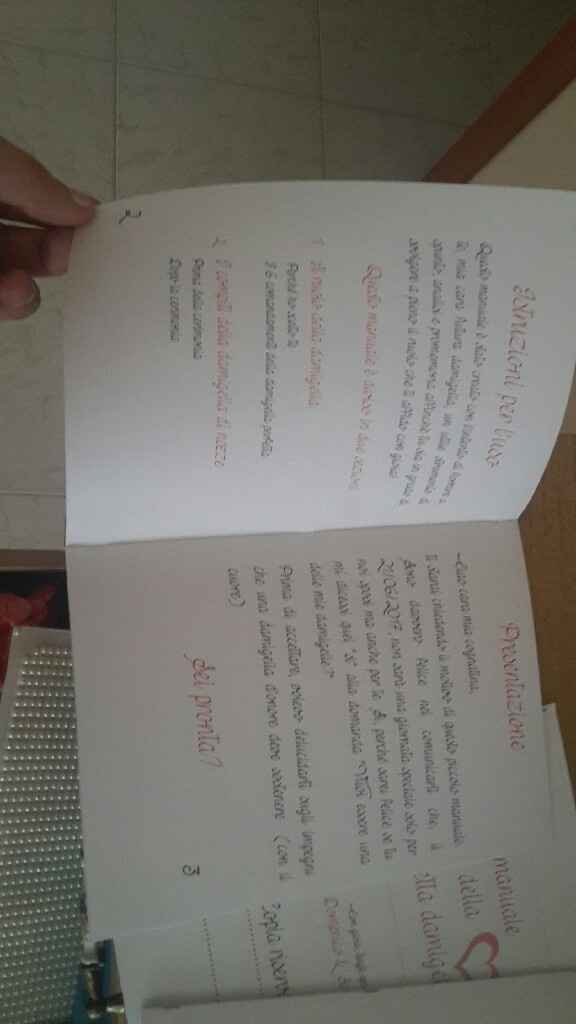 Istruzioni per l'uso
Questo manuale è stato creato con l'intento di fornire a
te, mia cara futura damigella, un utile strumento di
affinché tu sia in grado di
svolgere a pieno il ruolo che ti affido con gioia!
Questo manuale è diviso in due sezioni
1. Il ruolo della damigella
Perché ho scelto te
I 6 comandamenti della damigella perfetta
2. I compiti della damigella di nozze
Prima della cerimonia
Dopo la cerimonia
2
Presentazione
-Ciao cara mia cognatina,
ti starai chiedendo il motivo di questo piccolo manuale.
Sono davvero felice nel comunicarti che, il
21/06/2017, non sarà una giornata speciale solo per
noi sposi ma anche per te. Sì, perché sarei felice se tu
mi dicessi quel "sì" alla domanda "Vuoi essere una
delle mie damigelle?"
Prima di accettare, volevo delucidarti sugli impegni
che una damigella d'onore deve sostenere (con il
cuore)
Sei pronta?
3
manuale
della
damig